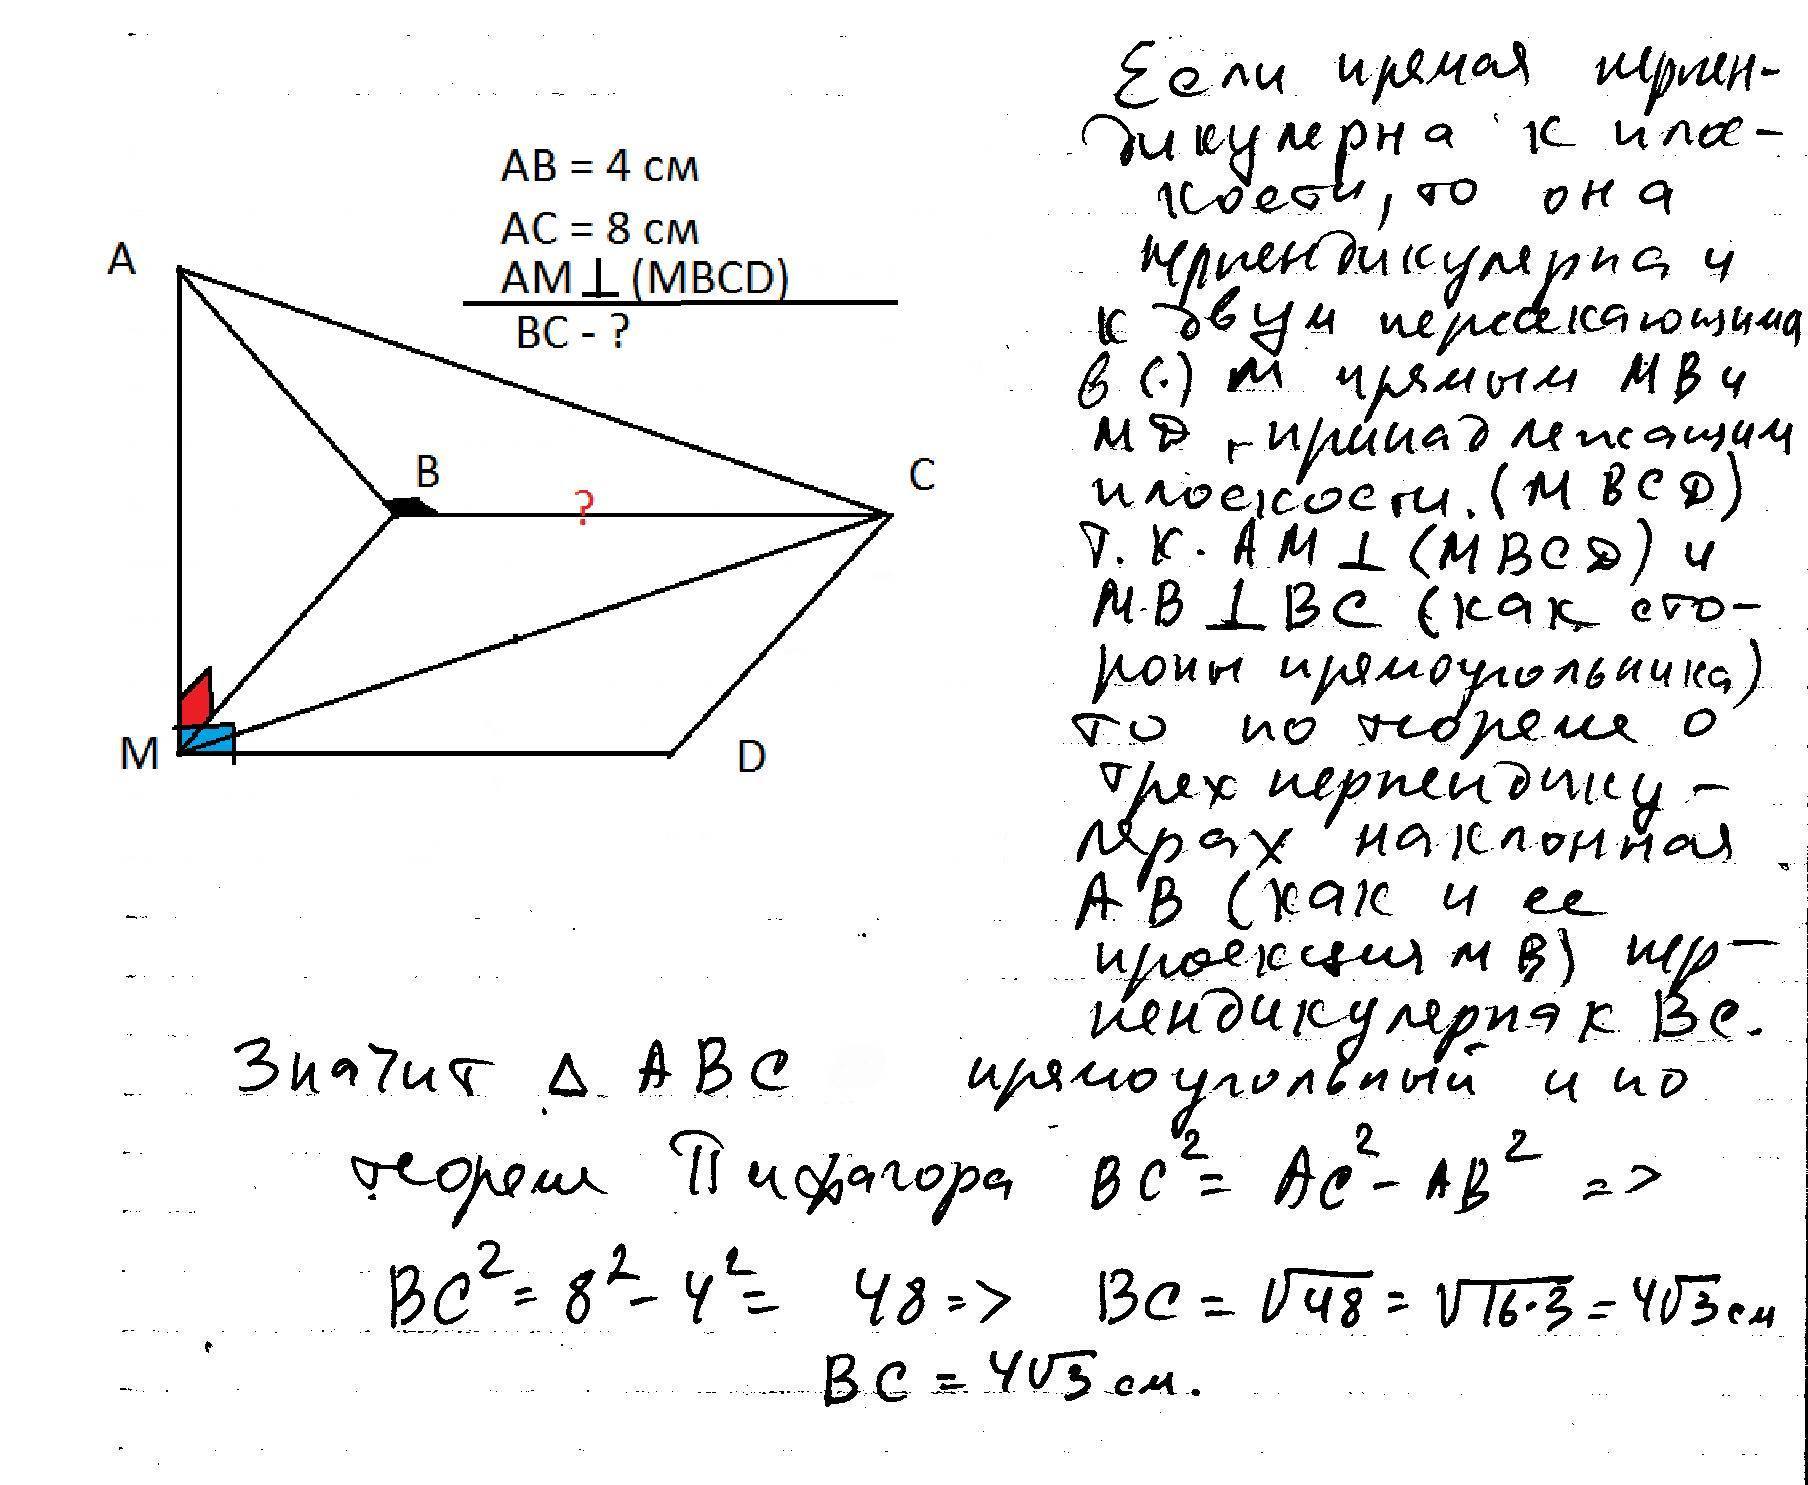 AB = 4 см
AC = 8 см
AM ⊥ (MBCD)
BC - ?
A
B
?
C
M
D
Если прямая перпен-
дикулярна к плос-
кости, то она
перпендикулярна и
к двум пересекающимся
в (·) M прямым MB и
MD, принадлежащим
плоскости. (MBCD)
Т.к. AM ⊥ (MBCD) и
MB ⊥ BC (как сто-
роны прямоугольника)
то по теореме о
трех перпендику-
лярах наклонная
AB (как и ее
проекция MB) пер-
пендикулярна к BC.
Значит Δ ABC прямоугольный и по
теореме Пифагора BC² = AC² - AB² =>
BC² = 8² - 4² = 48 => BC = √48 = √16·3 = 4√3 см
BC = 4√3 см.